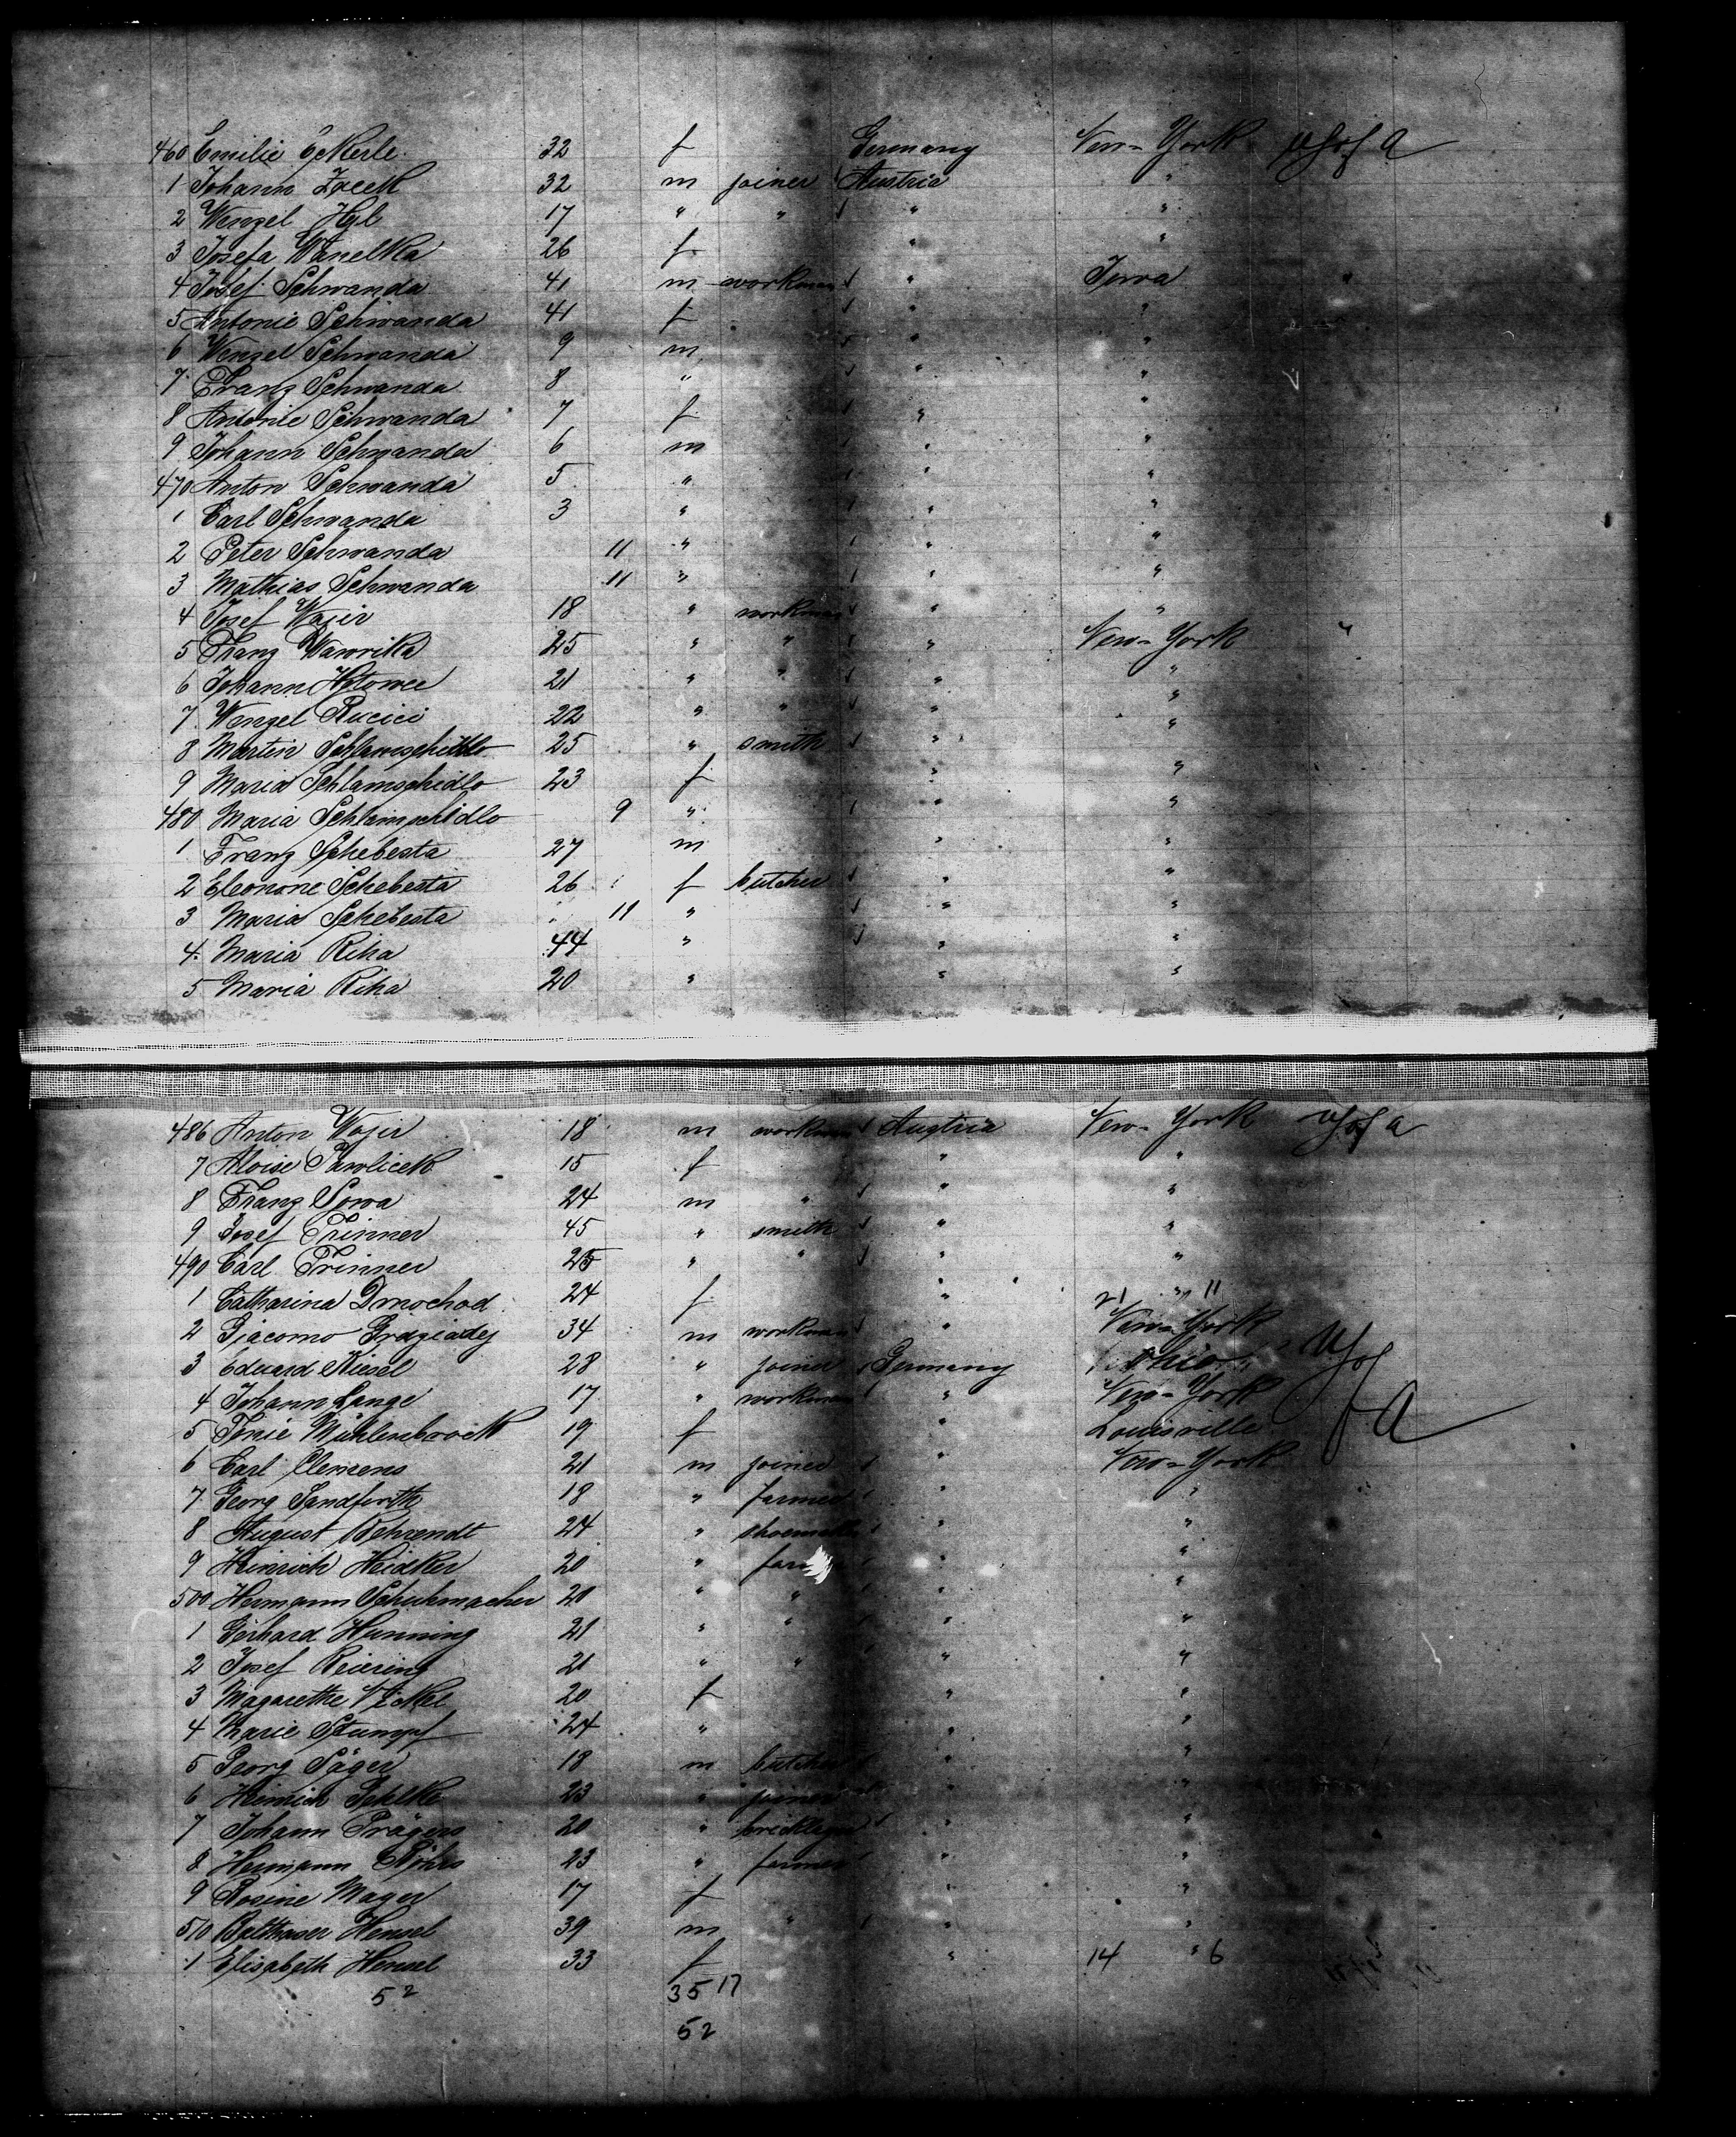 460 Emilie Eckerle 32 f Germany New-York U S of A
1 Johann Zacek 32 m joiner Austria "
2 Wenzel Hyb 17 " " " "
3 Josefa Wanelka 26 f " "
4 Josef Schwanda 41 m workman " Iowa "
5 Antonie Schwanda 41 f " "
6 Wenzel Schwanda 9 m " "
7 Franz Schwanda 8 " " "
8 Antonie Schwanda 7 f " "
9 Johann Schwanda 6 m " "
470 Anton Schwanda 5 " " "
1 Carl Schwanda 3 " " "
2 Peter Schwanda 11 " " "
3 Mathias Schwanda 11 " " "
4 Josef Wajir 18 " workman " "
5 Franz Wawrika 25 " " " New-York "
6 Johann 21 " " " "
7 Wenzel Rucici 22 " " " "
8 Martin Schlamschidlo 25 " smith " "
9 Maria Schlamschidlo 23 f " "
480 Maria Schlamschidlo 9 " " "
1 Franz Schebesta 27 m " "
2 Eleonore Schebesta 26 f butcher " "
3 Maria Schebesta 11 " " "
4 Maria Riha 44 " " "
5 Maria Riha 20 " " "
486 Anton Wajir 18 m workman Austria New-York U S of A
7 Aloise Pawlicek 15 f " "
8 Franz Sowa 24 m " " "
9 Josef Trinner 45 " smith " "
490 Carl Trinner 25 " " " "
1 Catharina Dmochod 24 f " " 21 11
2 Giacomo 34 m workman " New-York
3 Eduard Kiesel 28 " joiner Germany Ohio U S of A
4 Johann Lange 17 " workman " New-York
5 Tonie Mühlenbrock 19 f " Louisville
6 Carl Clemens 21 m joiner " New-York
7 Georg Sandforth 18 " farmer " "
8 August Behrendt 24 " shoemaker " "
9 Heinrich Heidker 20 " " "
500 Hermann Schuhmacher 20 " " " "
1 Gerhard Hunning 21 " " " "
2 Josef Reiering 21 " " " "
3 Magarethe Nickel 20 f " "
4 Marie Stumpf 24 " " "
5 Georg Säger 18 m butcher " "
6 Heinrich 23 " joiner " "
7 Johann Prägers 20 " bricklayer " "
8 Hermann Röhrs 23 " farmer " "
9 Rosine Mayer 17 f " "
510 Balthaser Hensel 39 m " " "
1 Elisabeth Hensel 33 f " 14 " 6
52 35 17
52